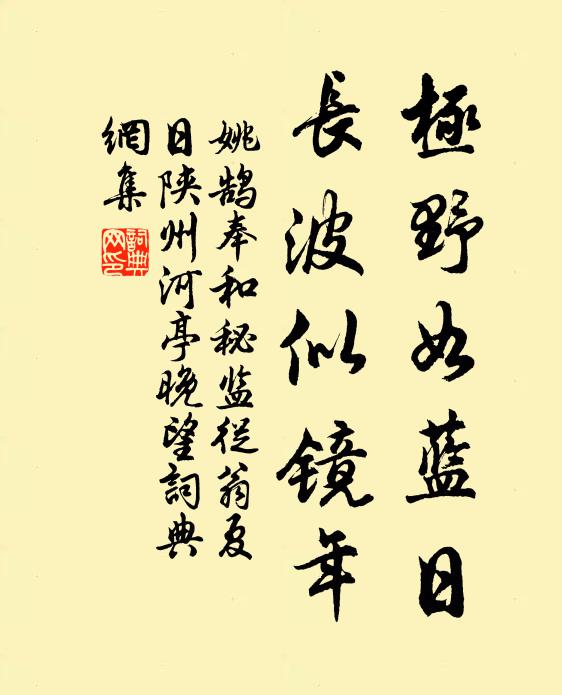 極野如藍日
長波似鏡年
姚鹄奉和秘监從翁夏
日陝州河亭晚望詞典
網集
詞典
网印